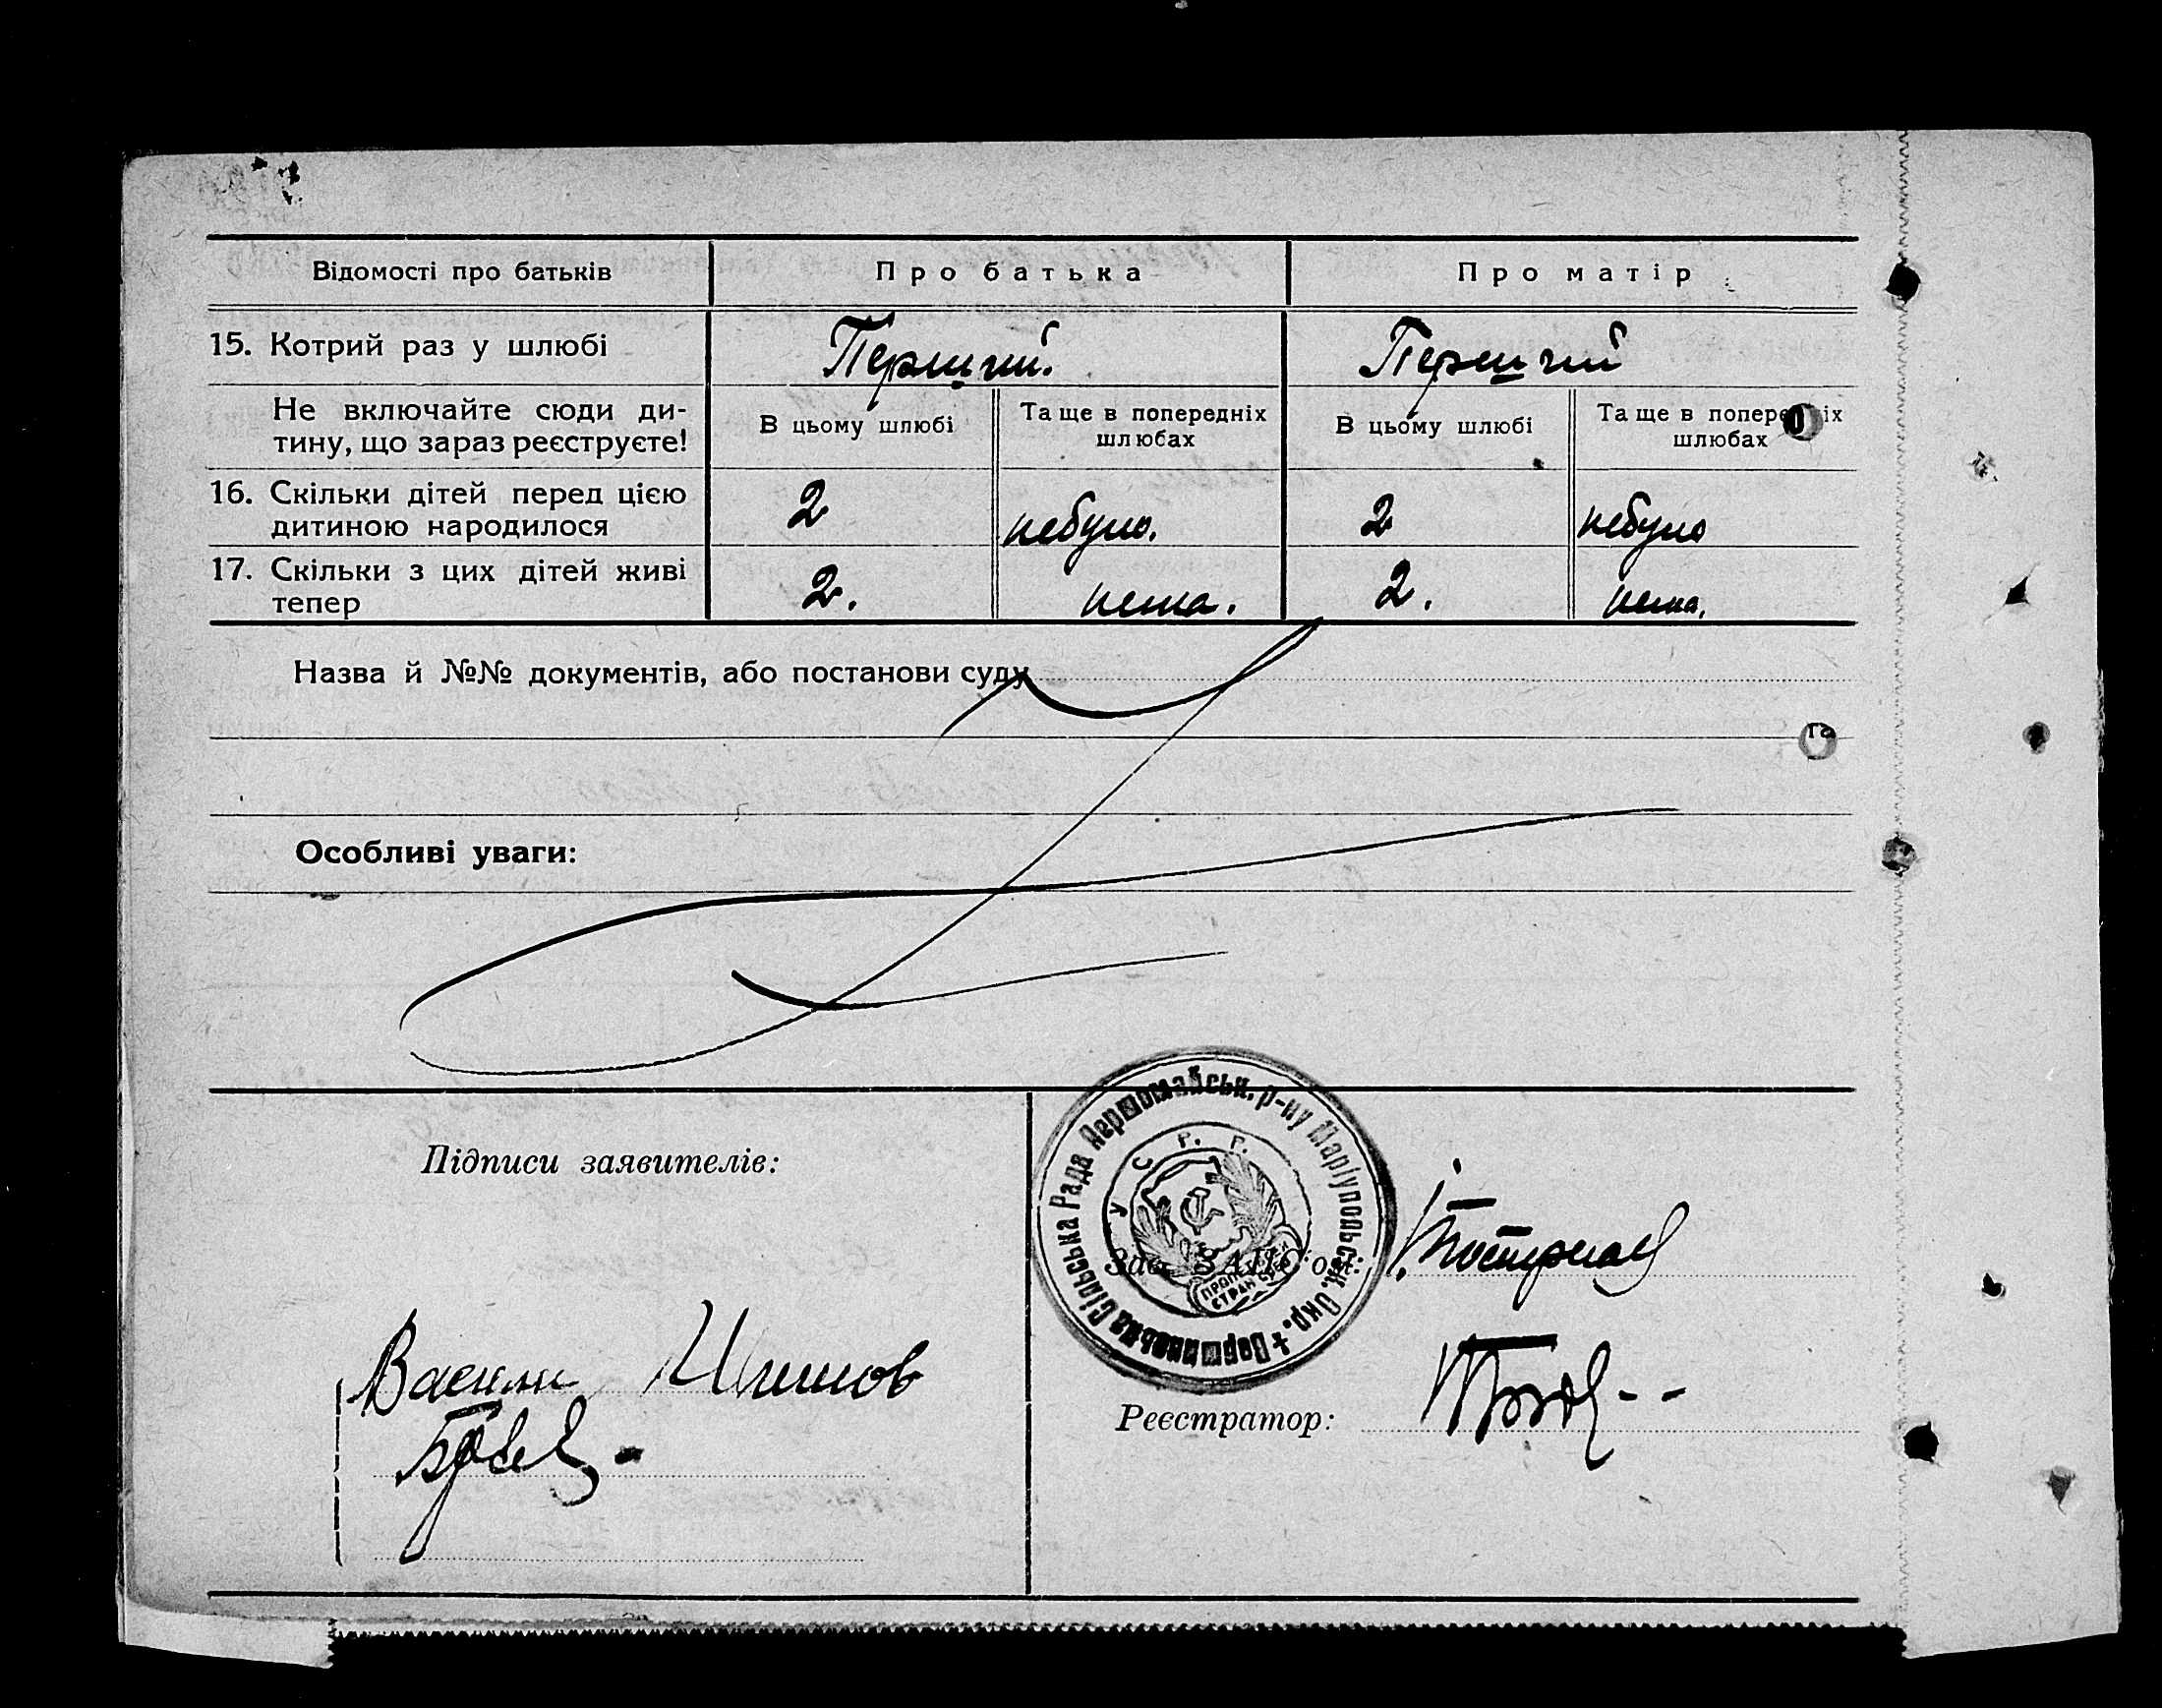 Відомості про батьків
Про батька
Про матір
15. Котрий раз у шлюбі
Перший.
Перший
Не включайте сюди ди-
тину, що зараз реєструєте!
В цьому шлюбі
Та ще в попередніх
шлюбах
В цьому шлюбі
Та ще в попере іх
шлюбах
16. Скільки дітей перед цією
дитиною народилося
2
небуло.
2
небуло
17. Скільки з цих дітей живі
тепер
2.
нема.
2.
нема.
Назва й №№ документів, або постанови суду
та
Особливі уваги:
Підписи заявителів:
Сільська Рада Першомайськ. р-ну Маріупольськ. Окр. +
У С Р. Р.
Зав. ЗАГС'ом:
Реєстратор: